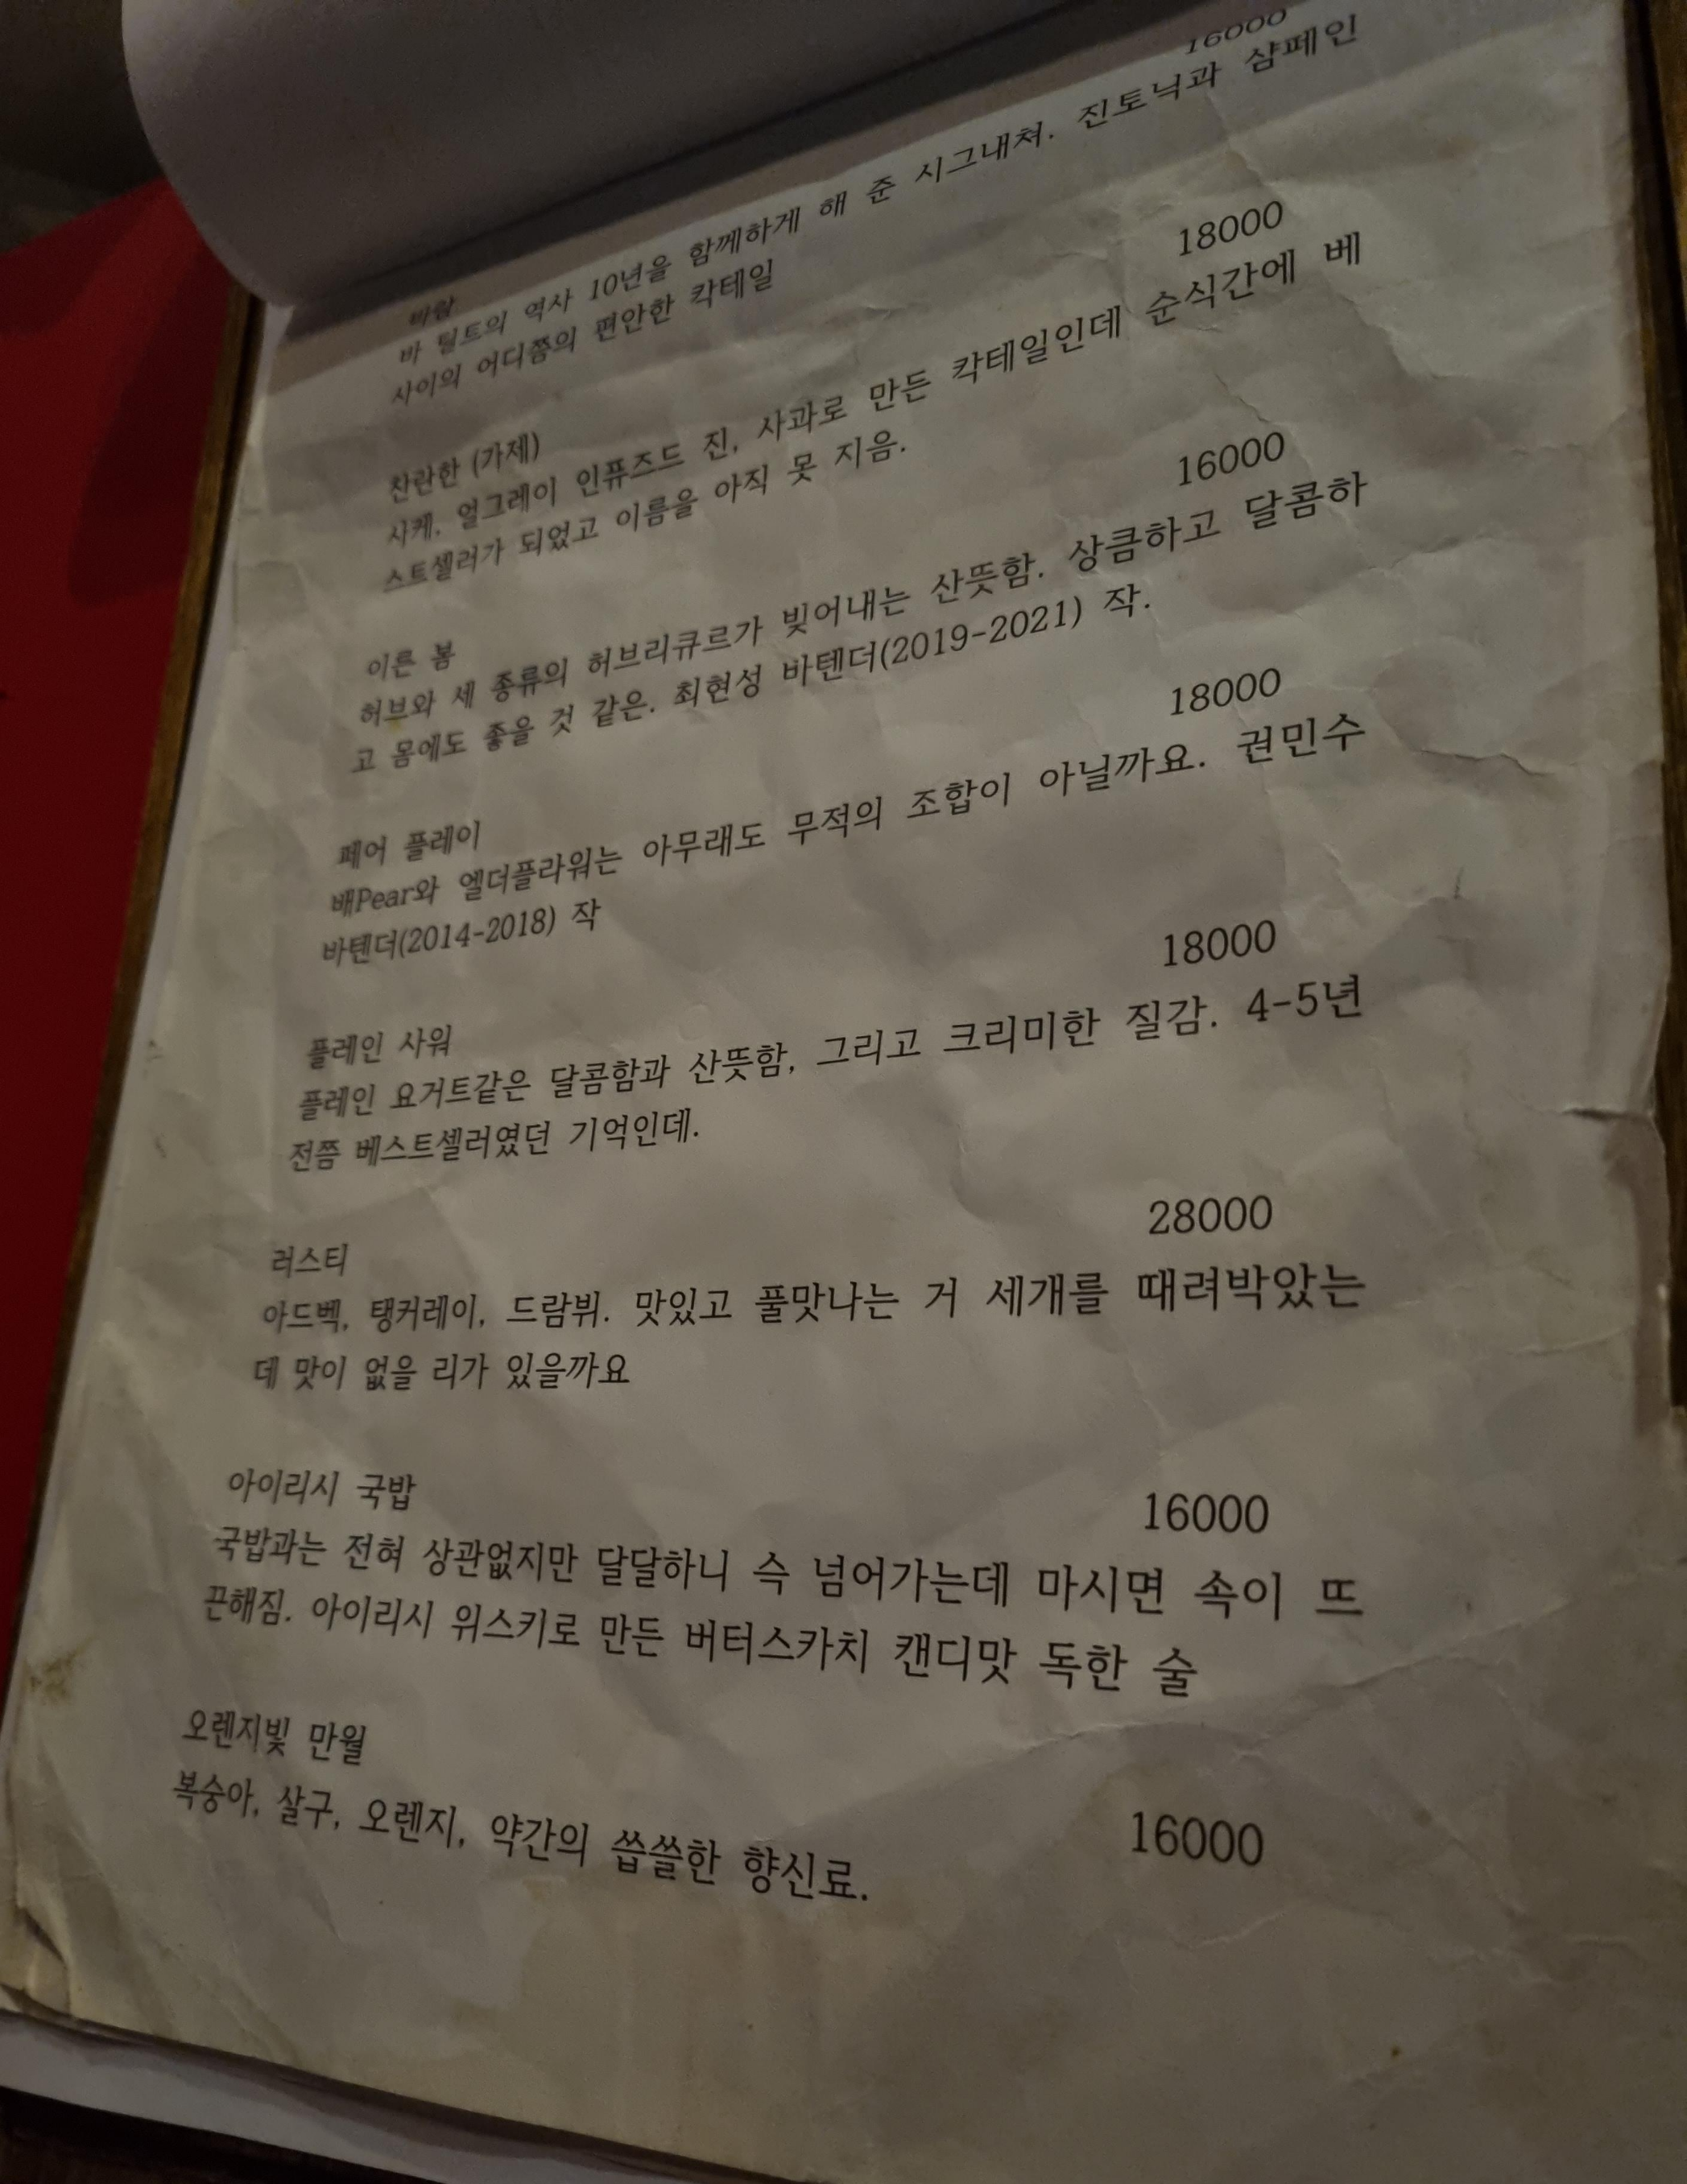 바람 16000
바 틸트의 역사 10년을 함께하게 해 준 시그내쳐. 진토닉과 샴페인
사이의 어디쯤의 편안한 칵테일
찬란한 (가제) 18000
사케, 얼그레이 인퓨즈드 진, 사과로 만든 칵테일인데 순식간에 베
스트셀러가 되었고 이름을 아직 못 지음.
이른 봄 16000
허브와 세 종류의 허브리큐르가 빚어내는 산뜻함. 상큼하고 달콤하
고 몸에도 좋을 것 같은. 최현성 바텐더(2019-2021) 작.
페어 플레이 18000
배Pear와 엘더플라워는 아무래도 무적의 조합이 아닐까요. 권민수
바텐더(2014-2018) 작
플레인 사워 18000
플레인 요거트같은 달콤함과 산뜻함, 그리고 크리미한 질감. 4-5년
전쯤 베스트셀러였던 기억인데.
러스티 28000
아드벡, 탱커레이, 드람뷔. 맛있고 풀맛나는 거 세개를 때려박았는
데 맛이 없을 리가 있을까요
아이리시 국밥 16000
국밥과는 전혀 상관없지만 달달하니 슥 넘어가는데 마시면 속이 뜨
끈해짐. 아이리시 위스키로 만든 버터스카치 캔디맛 독한 술
오렌지빛 만월 16000
복숭아, 살구, 오렌지, 약간의 씁쓸한 향신료.